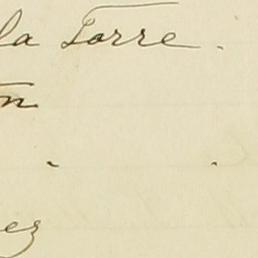 la Torre.
on
ez